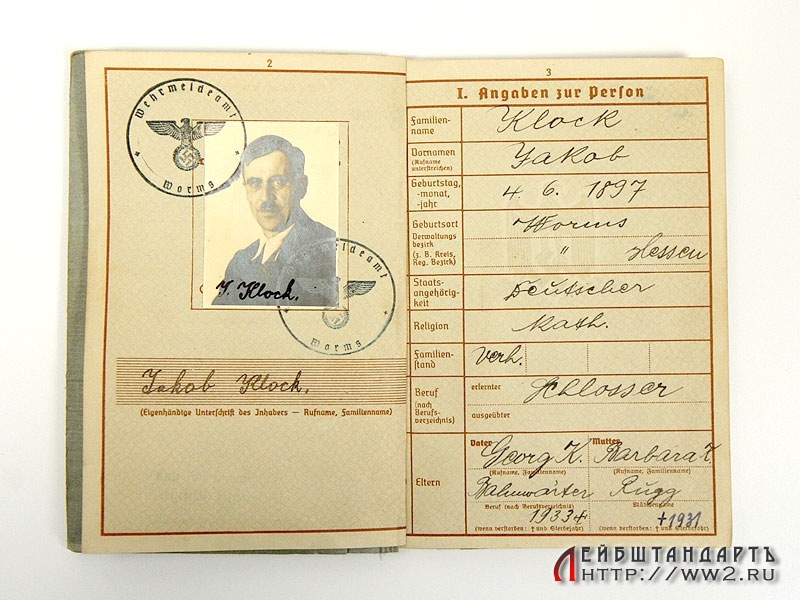 2
Wehrmeldeamt
Worms
J. Klock.
Wehrmeldeamt
Worms
Jakob Klock.
(Eigenhändige Unterschrift des Inhabers — Rufname, Familienname)
3
I. Angaben zur Person
Familien-
name
Klock
Vornamen
(Rufname
unterstreichen)
Jakob
Geburtstag,
-monat,
-jahr
4. 6. 1897
Geburtsort
Verwaltungs
bezirk
(z. B. Kreis,
Reg. Bezirk)
Worms
" Hessen
Staats-
angehörig-
keit
Deutscher
Religion
Kath.
Familien-
stand
verh.
Beruf
(nach
Berufs-
verzeichnis)
erlernter
Schlosser
ausgeübter
Eltern
Vater
Georg K.
(Rufname, Familienname)
Bahnwärter
Beruf (nach Berufsverzeichnis)
1933 +
(wenn verstorben: † und Sterbejahr)
Mutter
Barbara K
(Rufname, Familienname)
Rugg
Mädchenname
+1931
(wenn verstorben: † und Sterbejahr)
ЛЕЙБШТАНДАРТЪ
HTTP://WW2.RU